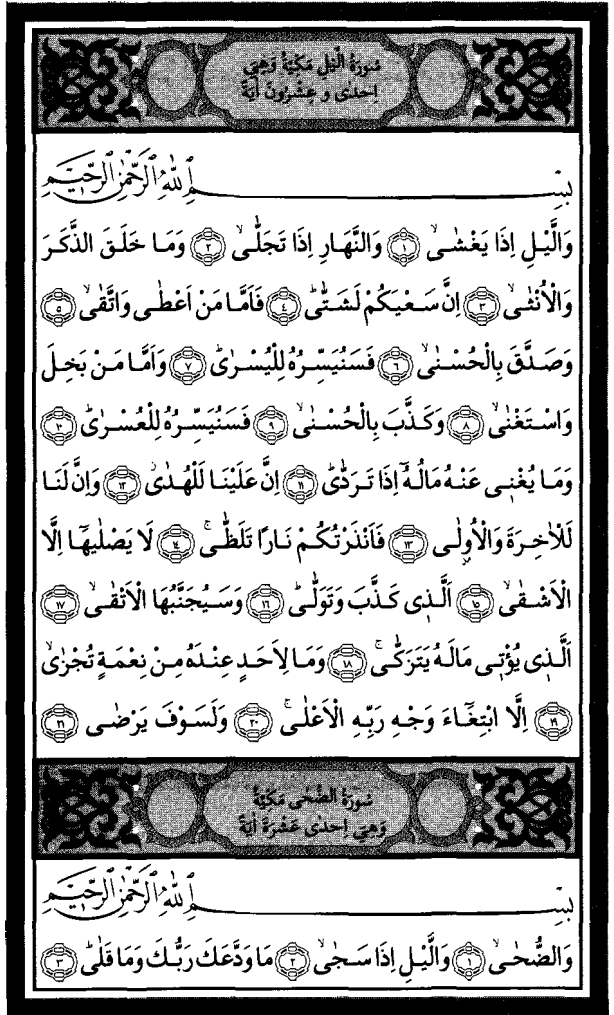 سُورَةُ الَّيْلِ مَكِّيَّةٌ وَهِيَ
اِحْدٰى وَ عِشْرُونَ اٰيَةً
بِسْمِ اللّٰهِ الرَّحْمٰنِ الرَّحٖيمِ
وَالَّيْلِ اِذَا يَغْشٰىۙ ﴿١﴾ وَالنَّهَارِ اِذَا تَجَلّٰىۙ ﴿٢﴾ وَمَا خَلَقَ الذَّكَرَ
وَالْاُنْثٰىۙ ﴿٣﴾ اِنَّ سَعْيَكُمْ لَشَتّٰىؕ ﴿٤﴾ فَاَمَّا مَنْ اَعْطٰى وَاتَّقٰىۙ ﴿٥﴾
وَصَدَّقَ بِالْحُسْنٰىۙ ﴿٦﴾ فَسَنُيَسِّرُهُ لِلْيُسْرٰىؕ ﴿٧﴾ وَاَمَّا مَنْ بَخِلَ
وَاسْتَغْنٰىۙ ﴿٨﴾ وَكَذَّبَ بِالْحُسْنٰىۙ ﴿٩﴾ فَسَنُيَسِّرُهُ لِلْعُسْرٰىؕ ﴿١٠﴾
وَمَا يُغْنٖى عَنْهُ مَالُهُٓ اِذَا تَرَدّٰىؕ ﴿١١﴾ اِنَّ عَلَيْنَا لَلْهُدٰىؗ ﴿١٢﴾ وَاِنَّ لَنَا
لَلْاٰخِرَةَ وَالْاُو۫لٰى ﴿١٣﴾ فَاَنْذَرْتُكُمْ نَارًا تَلَظّٰىۚ ﴿١٤﴾ لَا يَصْلٰيهَٓا اِلَّا
الْاَشْقٰىۙ ﴿١٥﴾ اَلَّذٖى كَذَّبَ وَتَوَلّٰىؕ ﴿١٦﴾ وَسَيُجَنَّبُهَا الْاَتْقٰىۙ ﴿١٧﴾
اَلَّذٖى يُؤْتٖى مَالَهُ يَتَزَكّٰىۚ ﴿١٨﴾ وَمَا لِاَحَدٍ عِنْدَهُ مِنْ نِعْمَةٍ تُجْزٰىۙ
﴿١٩﴾ اِلَّا ابْتِغَٓاءَ وَجْهِ رَبِّهِ الْاَعْلٰىۚ ﴿٢٠﴾ وَلَسَوْفَ يَرْضٰى ﴿٢١﴾
سُورَةُ الضُّحٰى مَكِّيَّةٌ
وَهِيَ اِحْدٰى عَشْرَةَ اٰيَةً
بِسْمِ اللّٰهِ الرَّحْمٰنِ الرَّحٖيمِ
وَالضُّحٰىۙ ﴿١﴾ وَالَّيْلِ اِذَا سَجٰىۙ ﴿٢﴾ مَا وَدَّعَكَ رَبُّكَ وَمَا قَلٰىؕ ﴿٣﴾